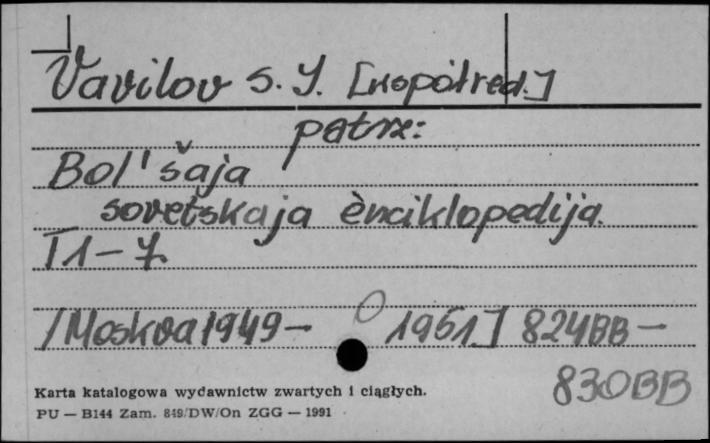 Vavilov S. J. [współred.]
patrz:
Bol'šaja
sovetskaja ènciklopedija.
T1-7.
/Moskva 1949- 1951] 824BB-
830BB
Karta katalogowa wydawnictw zwartych i ciągłych.
PU — B144 Zam. 849/DW/On ZGG — 1991